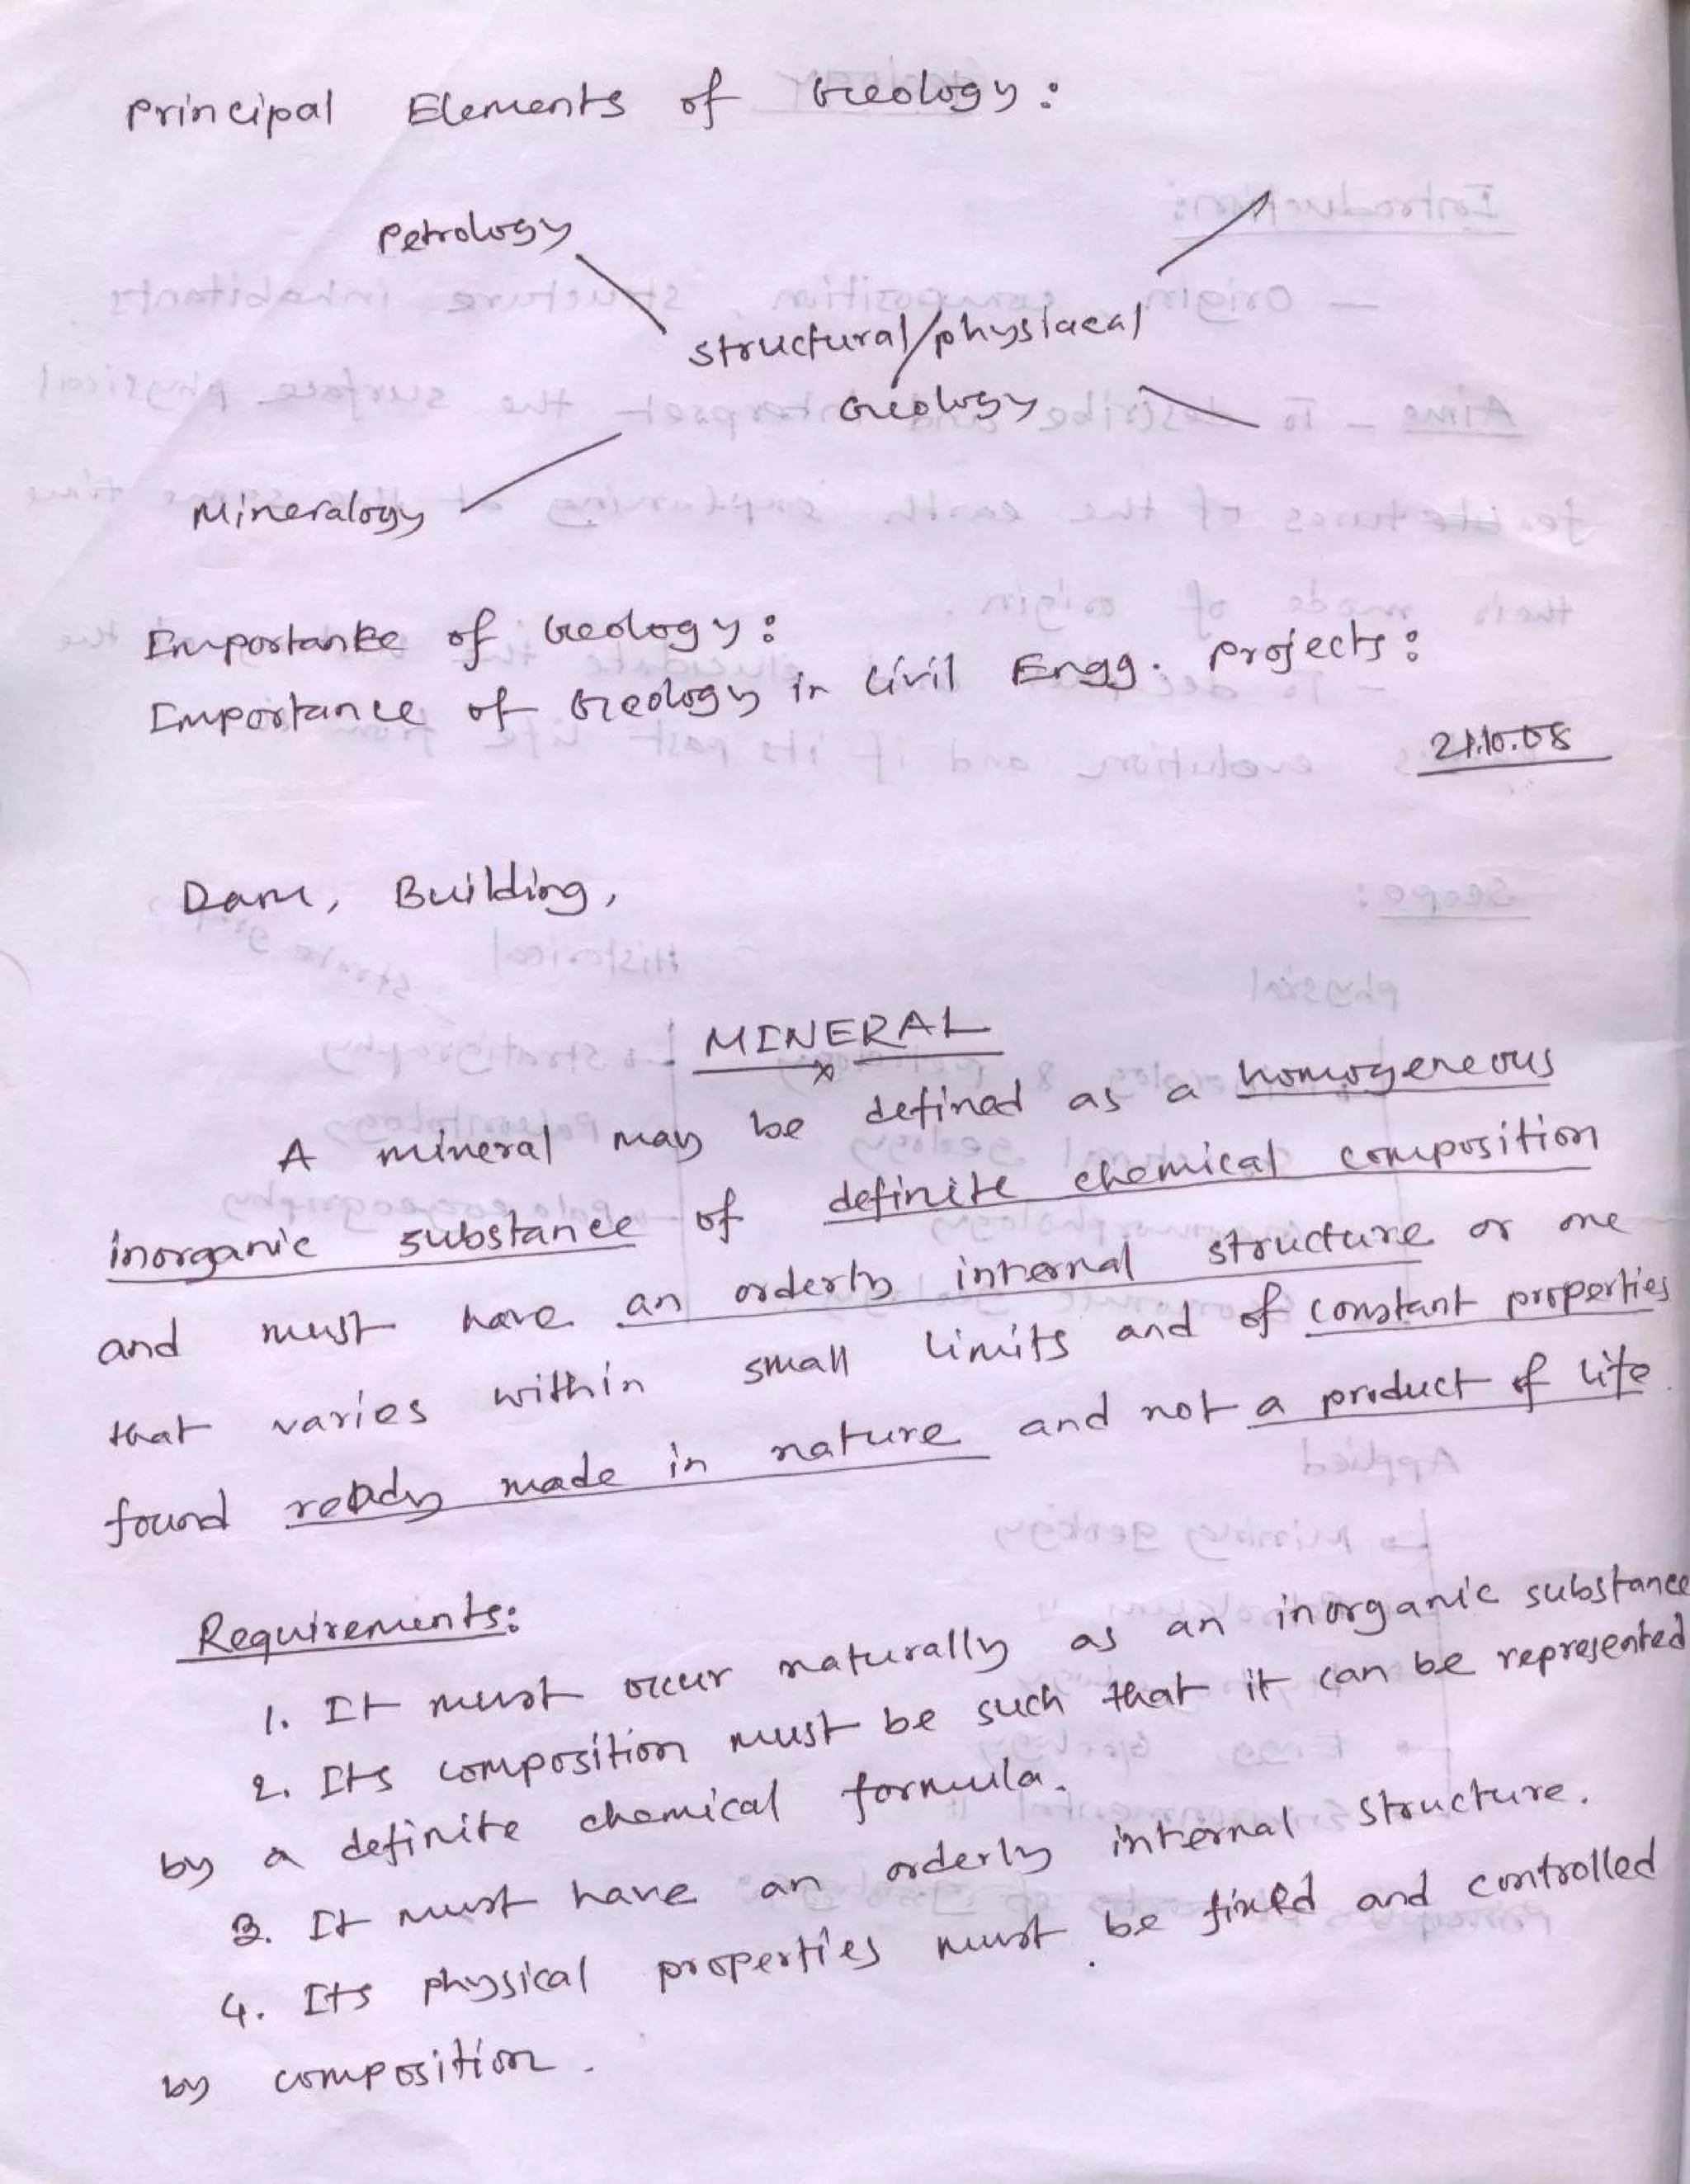 Principal Elements of Geology:
Petrology
Structural/physiacal
Geology
Mineralogy
Importanke of Geology:
Importance of Geology in Civil Engg. Projects:
21.10.08
Dam, Building,
MINERAL
x
A mineral may be defined as a homogeneous
inorganic substance of definite chemical composition
and must have an orderly internal structure or one
that varies within small limits and of constant properties
found ready made in nature and not a product of life.
Requirements:
1. It must occur naturally as an inorganic substance
2. Its composition must be such that it can be represented
by a definite chemical formula.
3. It must have an orderly internal structure.
4. Its physical properties must be fixed and controlled
by composition.